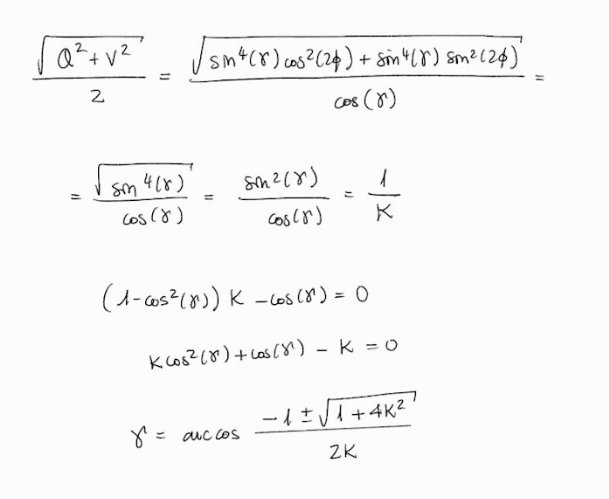 √(Q² + V²) / 2 = √(sin⁴(γ) cos²(2ϕ) + sin⁴(γ) sin²(2ϕ)) / cos(γ) =
= √(sin⁴(γ)) / cos(γ) = sin²(γ) / cos(γ) = 1 / K
(1 - cos²(γ)) K - cos(γ) = 0
K cos²(γ) + cos(γ) - K = 0
γ = arccos (-1 ± √(1 + 4K²)) / 2K